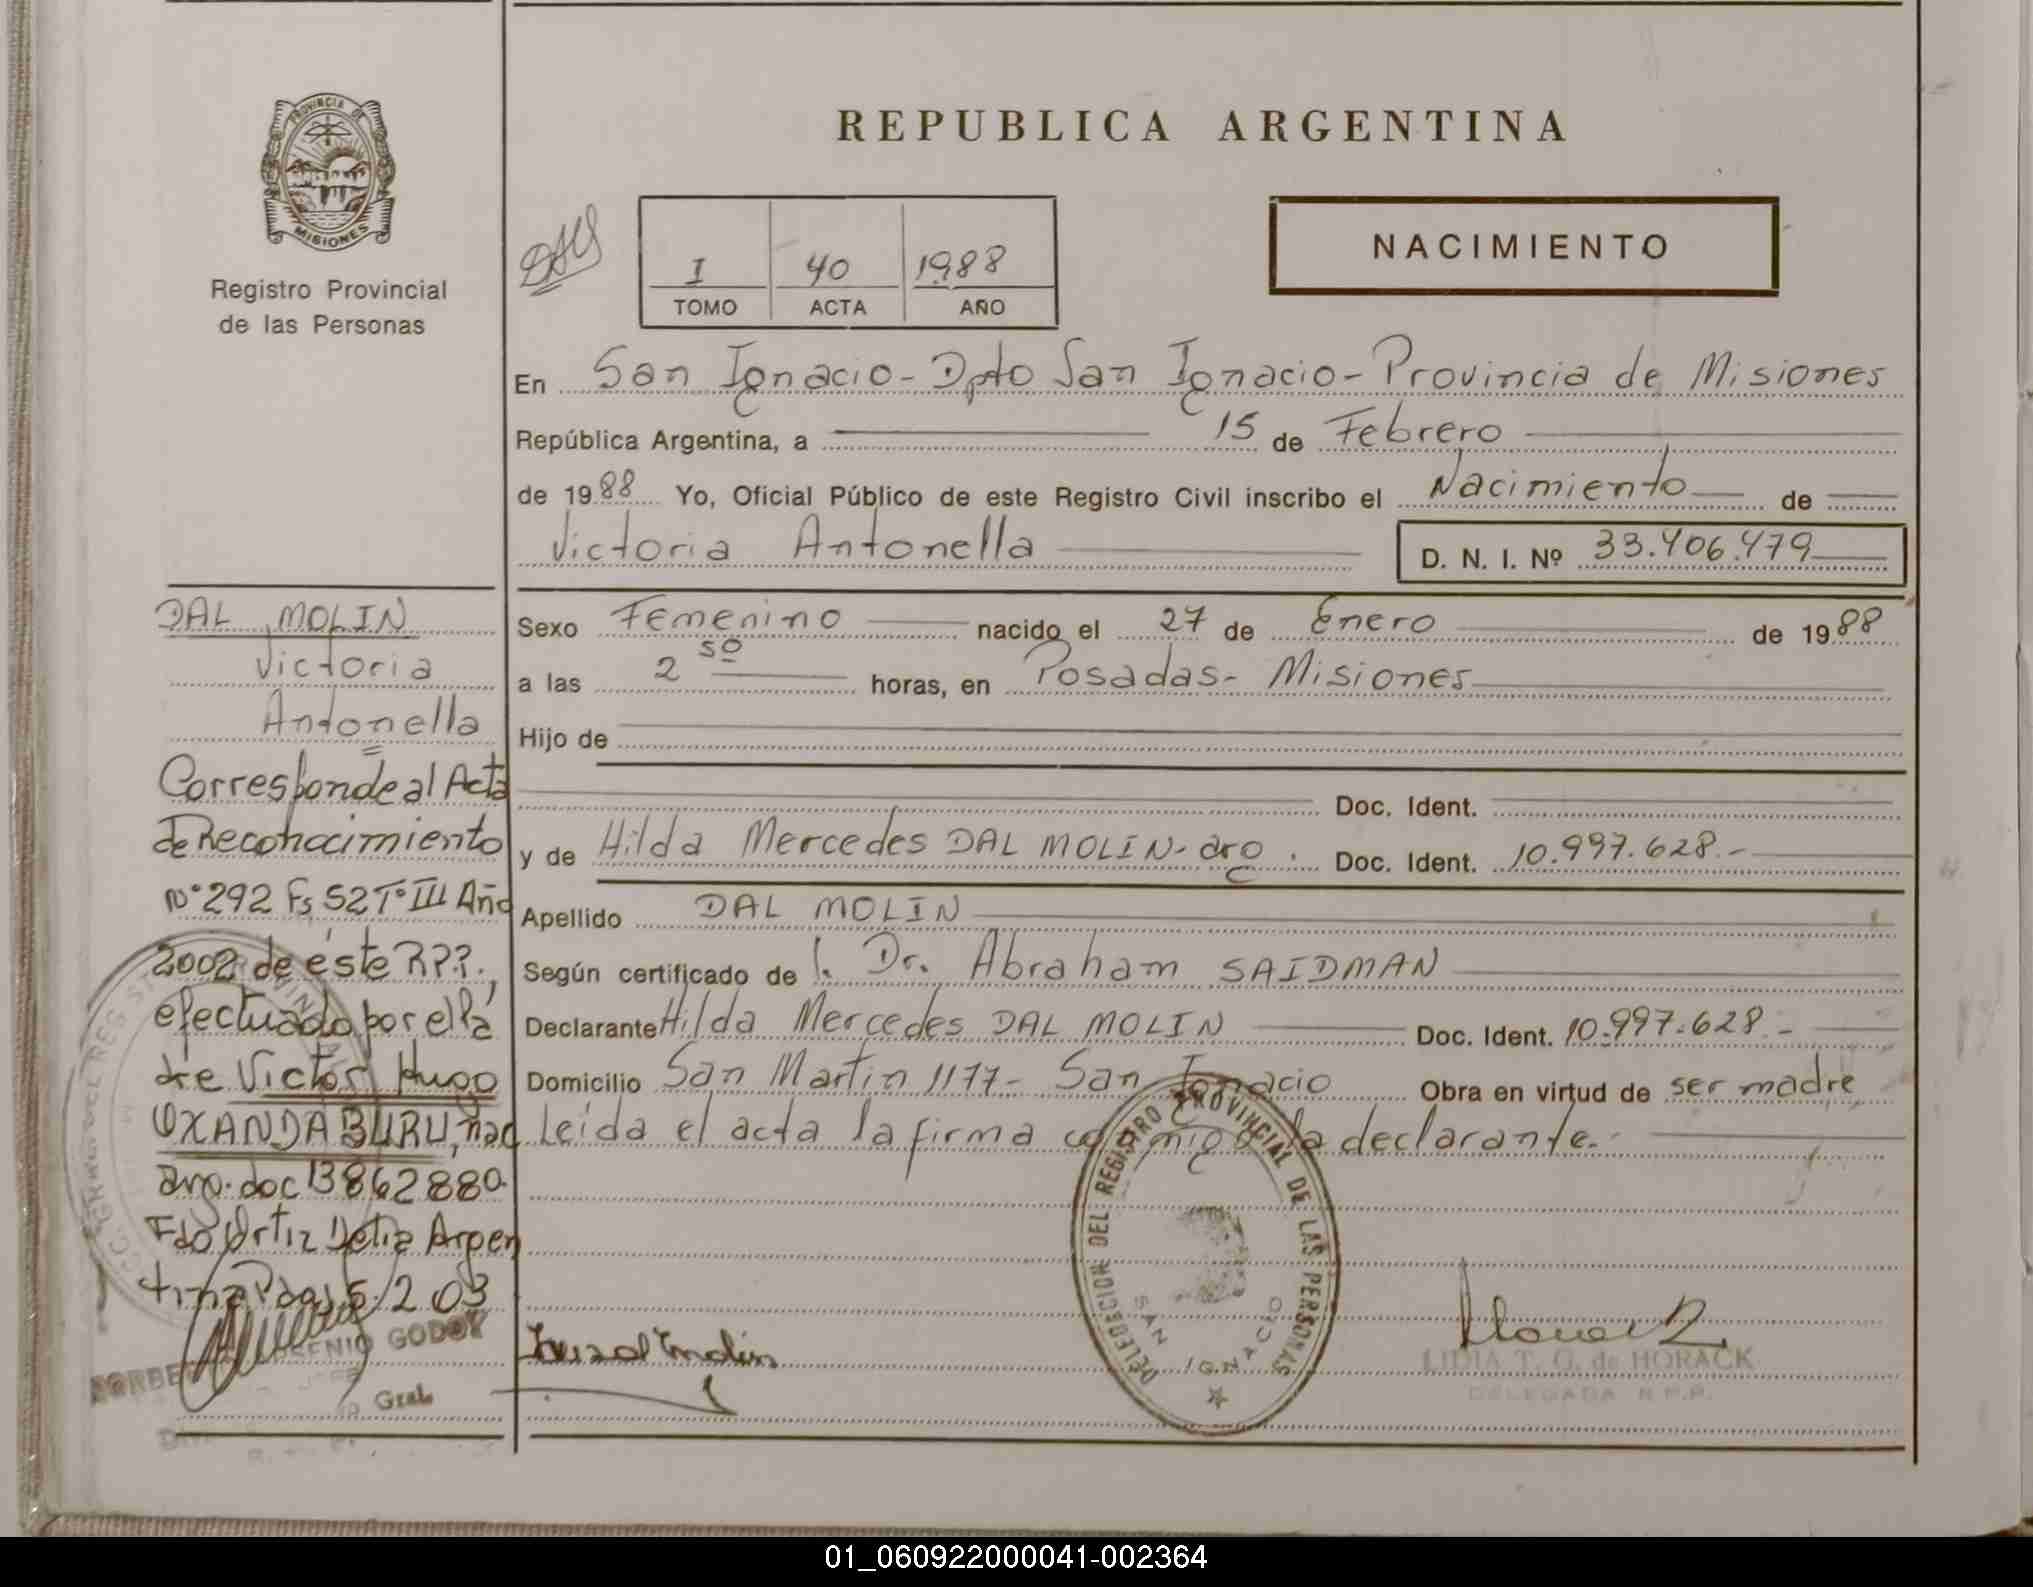 PROVINCIA DE
MISIONES
Registro Provincial
de las Personas
REPUBLICA ARGENTINA
NACIMIENTO
I 40 1988
TOMO ACTA AÑO
En San Ignacio - Dpto San Ignacio - Provincia de Misiones
República Argentina, a 15 de Febrero
de 1988 Yo, Oficial Público de este Registro Civil inscribo el Nacimiento de
Victoria Antonella D. N. I. Nº 33.406.479
Sexo Femenino nacido el 27 de Enero de 1988
a las 2 50 horas, en Posadas - Misiones
Hijo de
Doc. Ident.
y de Hilda Mercedes DAL MOLIN - arg. Doc. Ident. 10.997.628.-
Apellido DAL MOLIN
Según certificado de Dr. Abraham SAIDMAN
Declarante Hilda Mercedes DAL MOLIN Doc. Ident. 10.997.628.-
Domicilio San Martin 1177 - San Ignacio Obra en virtud de ser madre
Leída el acta la firma conmigo la declarante.-
DAL MOLIN
Victoria
Antonella
Corresponde al Acta
de Reconocimiento
Nº 292 Fs 52 Tº III Año
2002 de éste R.P.P.,
efectuado por el pa
dre Victor Hugo
OXANDABURU, nac
arg. doc 13862880
Fdo Ortiz Delia Argen
tina Pdas 5/2 03
GODOY
Gral.
DELEGACION DEL REGISTRO PROVINCIAL DE LAS PERSONAS
SAN IGNACIO
LIDIA T. G. de HORACK
DELEGADA R.P.P.
01_060922000041-002364